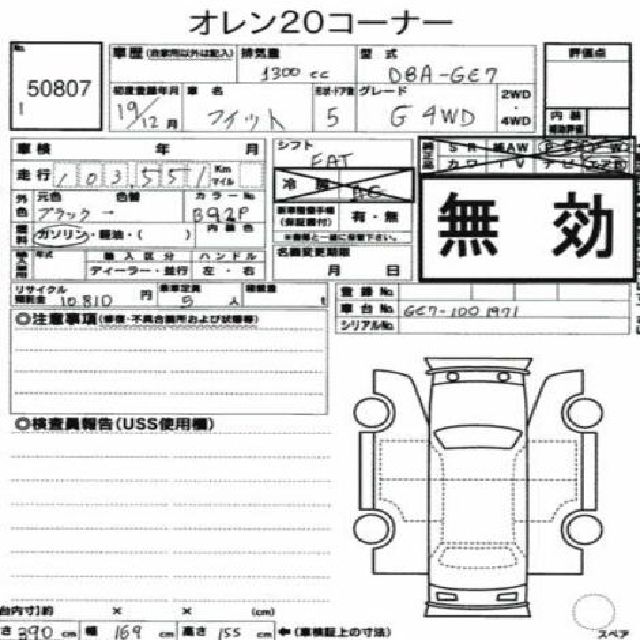 オレン20コーナー
No. 50807
車歴(自家用以外は記入) 排気量 1300 cc 型式 DBA-GE7 評価点
初度登録年月 19/12 月 車名 フィット 形状・ドア数 5 グレード G 4WD 2WD・4WD 内装
車検 年 月 シフト FAT
走行 103,551 Km マイル 冷 AC
外色 元色 ブラック → 色替 カラーNo. B92P 内装色
(保証書付) 有・無
燃料 ガソリン・軽油・( )
無効
年式 輸入区分 ハンドル 名義変更期限
ディーラー・並行 左・右 月 日
リサイクル預託金 10,810 円 乗車定員 5 人 積載量 t
登録No.
車台No. GE7-1001971
シリアルNo.
◎注意事項(修復・不具合箇所および状態等)
◎検査員報告(USS使用欄)
台内寸]約 × × (cm)
さ 390 cm 幅 169 cm 高さ 155 cm ←(車検証上の寸法)
スペア